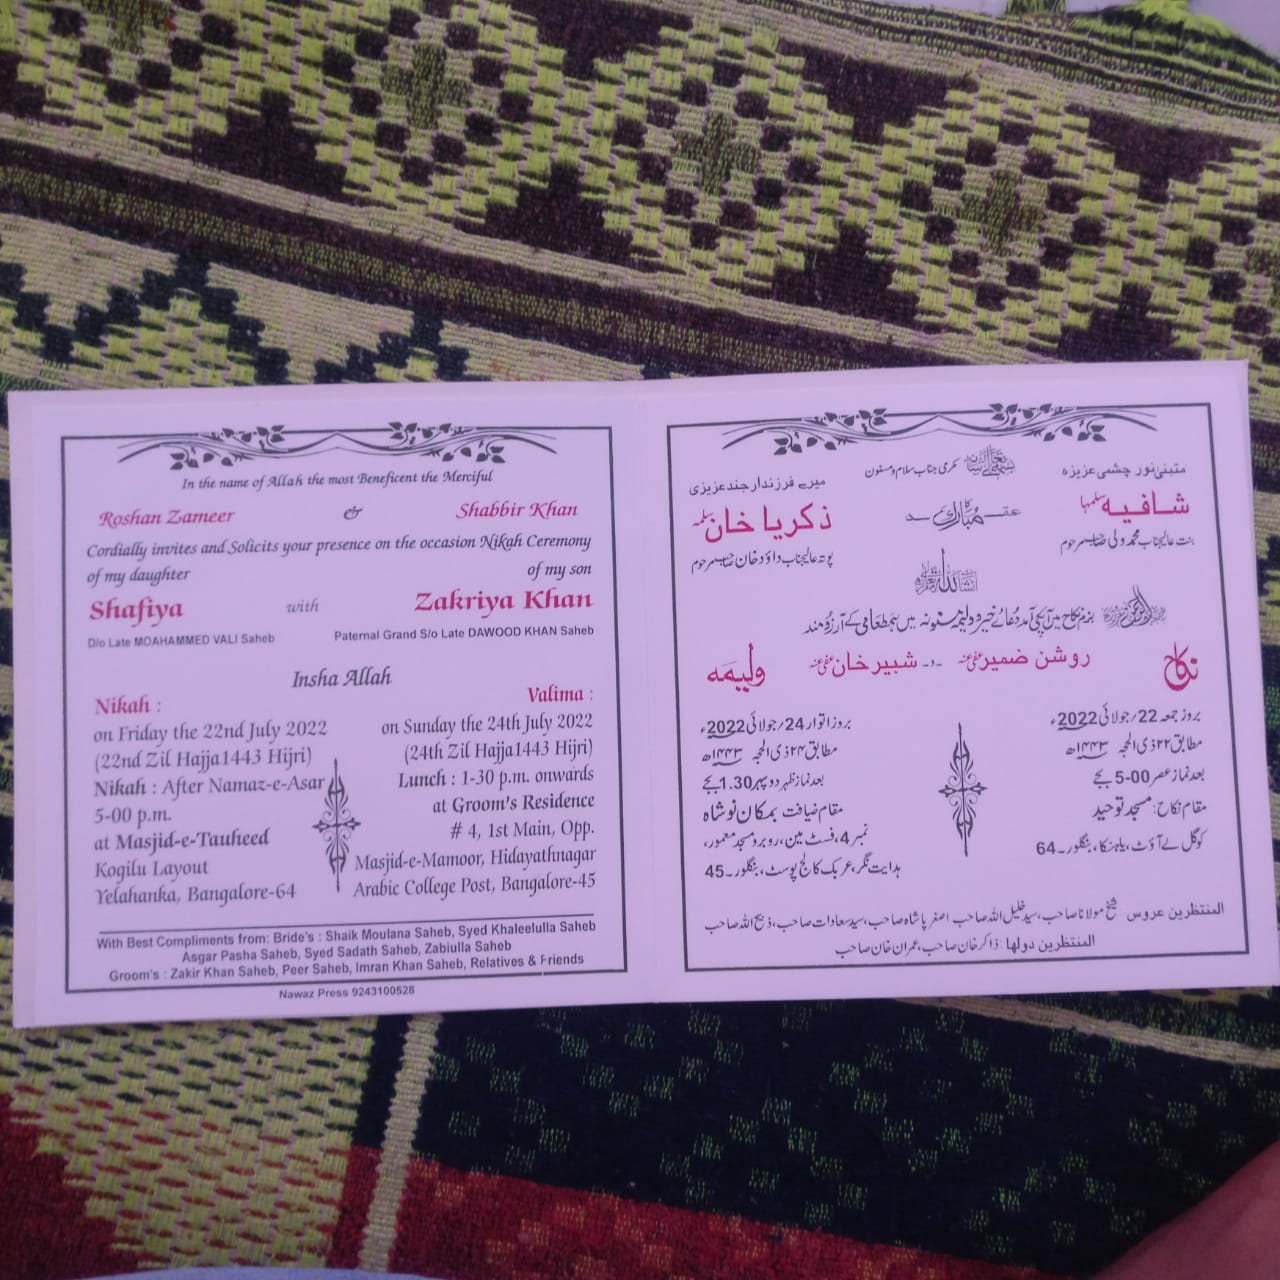 In the name of Allah the most Beneficent the Merciful
Roshan Zameer & Shabbir Khan
Cordially invites and Solicits your presence on the occasion Nikah Ceremony
of my daughter of my son
Shafiya with Zakriya Khan
D/o Late MOAHAMMED VALI Saheb Paternal Grand S/o Late DAWOOD KHAN Saheb
Insha Allah
Nikah :
on Friday the 22nd July 2022
(22nd Zil Hajja1443 Hijri)
Nikah : After Namaz-e-Asar
5-00 p.m.
at Masjid-e-Tauheed
Kogilu Layout
Yelahanka, Bangalore-64
Valima :
on Sunday the 24th July 2022
(24th Zil Hajja1443 Hijri)
Lunch : 1-30 p.m. onwards
at Groom's Residence
# 4, 1st Main, Opp.
Masjid-e-Mamoor, Hidayathnagar
Arabic College Post, Bangalore-45
With Best Compliments from: Bride's : Shaik Moulana Saheb, Syed Khaleelulla Saheb
Asgar Pasha Saheb, Syed Sadath Saheb, Zabiulla Saheb
Groom's : Zakir Khan Saheb, Peer Saheb, Imran Khan Saheb, Relatives & Friends
Nawaz Press 9243100528
مکرمی جناب سلام و مسنون
متبنیٰ نور چشمی عزیزہ
شافیہ سلمہا
بنت عالیجناب محمد ولی صاحب مرحوم
عقد مبارک کا
میرے فرزند ارجند عزیزی
ذکریا خان سلمہ
پوتہ عالیجناب داؤد خان صاحب مرحوم
انشاءاللہ تعالیٰ
بزم نکاح میں آپکی آمد دُعائے خیر و ولیمہ مسنونہ میں ہمطعامی کے آرزو مند
روشن ضمیر عفی عنہ ۔و۔ شبیر خان عفی عنہ
نکاح
بروز جمعہ 22/جولائی 2022ء
مطابق ۲۲ ذی الحجہ ۱۴۴۳ھ
بعد نماز عصر 00-5 بجے
مقام نکاح: مسجد توحید
کوگل لے آؤٹ، یلہنکا، بنگلور۔64
ولیمہ
بروز اتوار 24/جولائی 2022ء
مطابق ۲۴ ذی الحجہ ۱۴۴۳ھ
بعد نماز ظہر دوپہر 1.30 بجے
مقام ضیافت بمکان نوشاہ
نمبر 4، فسٹ مین، روبرو مسجد معمور،
ہدایت نگر، عربک کالج پوسٹ، بنگلور۔45
المنتظرین عروس شیخ مولانا صاحب، سید خلیل اللہ صاحب اصغر پاشاہ صاحب، سید سعادات صاحب، ذبیح اللہ صاحب
المنتظرین دولہا: ذاکر خان صاحب، عمران خان صاحب